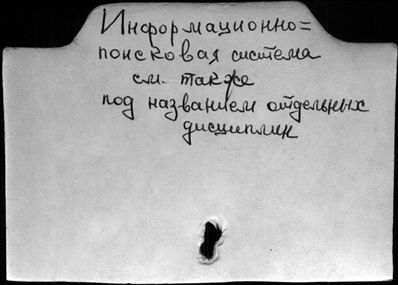 Информационно=
поисковая система
см. также
под названием отдельных
дисциплин